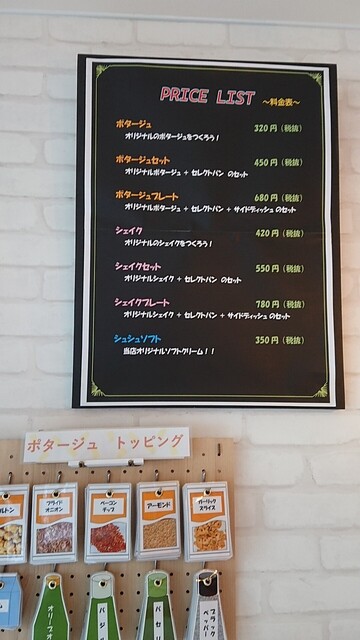 PRICE LIST ～料金表～
ポタージュ 320円（税抜）
オリジナルのポタージュをつくろう！
ポタージュセット 450円（税抜）
オリジナルポタージュ + セレクトパン のセット
ポタージュプレート 680円（税抜）
オリジナルポタージュ + セレクトパン + サイドディッシュ のセット
シェイク 420円（税抜）
オリジナルのシェイクをつくろう！
シェイクセット 550円（税抜）
オリジナルシェイク + セレクトパン のセット
シェイクプレート 780円（税抜）
オリジナルシェイク + セレクトパン + サイドディッシュ のセット
シュシュソフト 350円（税抜）
当店オリジナルソフトクリーム！！
ポタージュ トッピング
ルトン
フライド
オニオン
ベーコン
チップ
アーモンド
ガーリック
スライス
オリーブオ
バジ
パセリ
ブラック
ペッパー